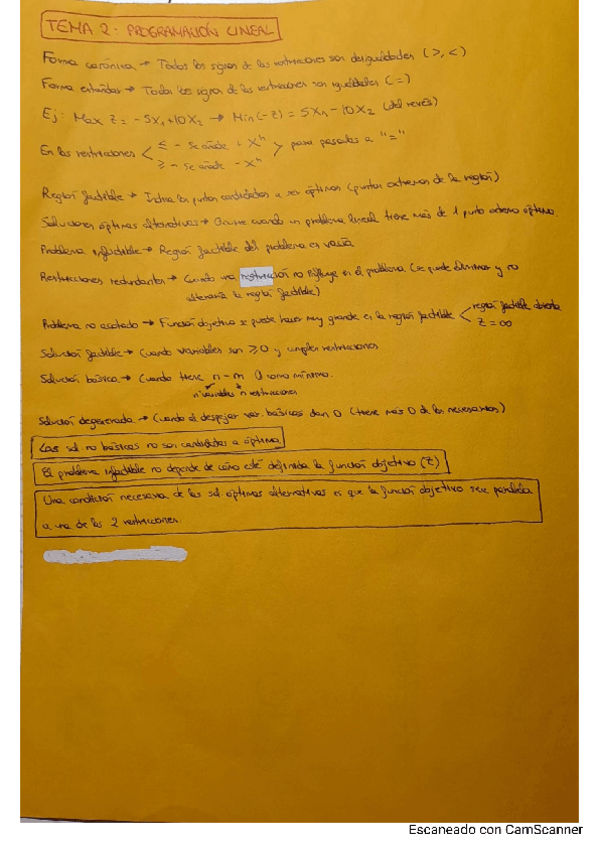 TEMA 2: PROGRAMACIÓN LINEAL
Forma canónica → Todos los signos de las restricciones son desigualdades (>, <)
Forma estándar → Todos los signos de las restricciones son igualdades (=)
Ej: Max Z = -5X1 + 10X2 → Min (-Z) = 5X1 - 10X2 (del revés)
En las restricciones < ≤ - Se añade + Xʰ
≥ - Se añade - Xʰ > para pasarlas a "="
Región factible → Indica los puntos candidatos a ser óptimos (puntos extremos de la región)
Soluciones óptimas alternativas → Ocurre cuando un problema lineal tiene más de 1 punto extremo óptimo.
Problema infactible → Región factible del problema es vacía
Restricciones redundantes → Cuando una restricción no influye en el problema (se puede eliminar y no
alteraría la región factible)
Problema no acotado → Función objetivo se puede hacer muy grande en la región factible < región factible abierta
Z = ∞
Solución factible → Cuando variables son ≥ 0 y cumplen restricciones
Solución básica → Cuando tiene n - m 0 como mínimo.
nº variables nº restricciones
Solución degenerada → Cuando al despejar var. básicas dan 0 (tiene más 0 de los necesarios)
Las sol no básicas no son candidatas a óptima
El problema infactible no depende de cómo esté definida la función objetivo (Z)
Una condición necesaria de las sol óptimas alternativas es que la función objetivo sea paralela
a una de las 2 restricciones.
Escaneado con CamScanner